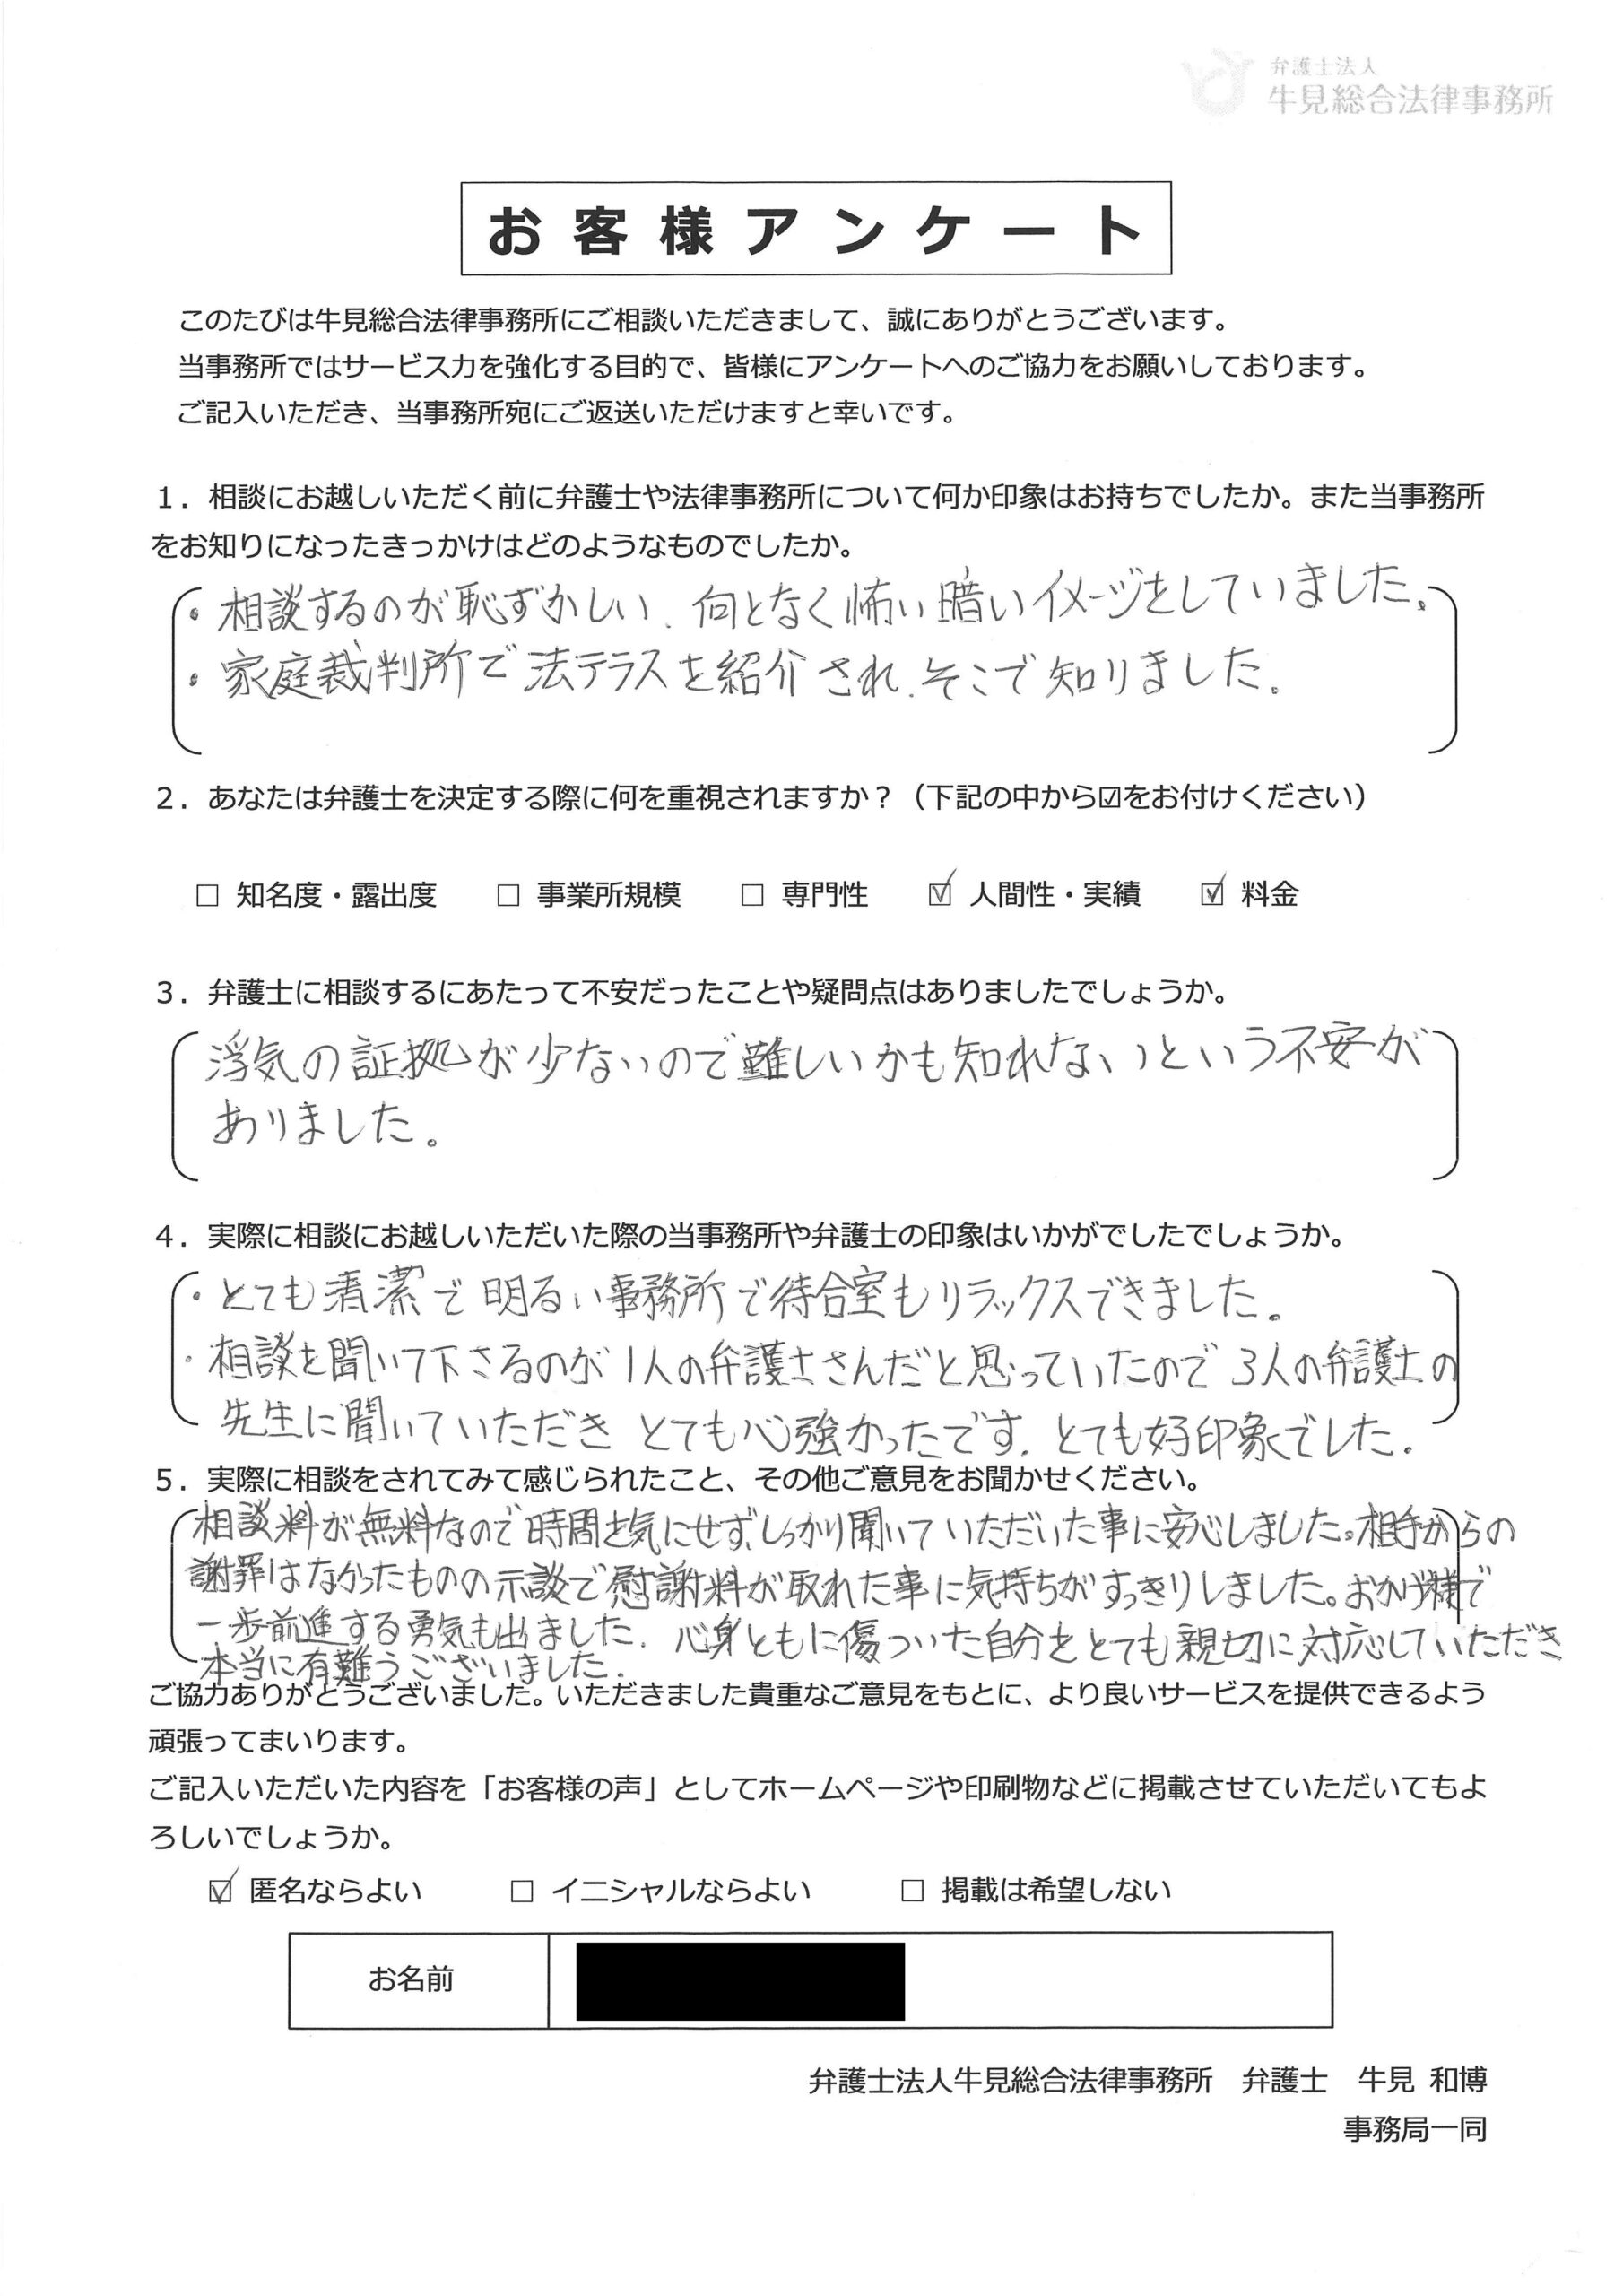 弁護士法人
牛見総合法律事務所
お客様アンケート
このたびは牛見総合法律事務所にご相談いただきまして、誠にありがとうございます。
当事務所ではサービス力を強化する目的で、皆様にアンケートへのご協力をお願いしております。
ご記入いただき、当事務所宛にご返送いただけますと幸いです。
１．相談にお越しいただく前に弁護士や法律事務所について何か印象はお持ちでしたか。また当事務所
をお知りになったきっかけはどのようなものでしたか。
・相談するのが恥ずかしい、何となく怖い暗いイメージをしていました。
・家庭裁判所で法テラスを紹介され、そこで知りました。
２．あなたは弁護士を決定する際に何を重視されますか？（下記の中から☑をお付けください）
□ 知名度・露出度 □ 事業所規模 □ 専門性 ☑ 人間性・実績 ☑ 料金
３．弁護士に相談するにあたって不安だったことや疑問点はありましたでしょうか。
浮気の証拠が少ないので難しいかも知れないという不安が
ありました。
４．実際に相談にお越しいただいた際の当事務所や弁護士の印象はいかがでしたでしょうか。
・とても清潔で明るい事務所で待合室もリラックスできました。
・相談を聞いて下さるのが1人の弁護士さんだと思っていたので3人の弁護士の
先生に聞いていただきとても心強かったです。とても好印象でした。
５．実際に相談をされてみて感じられたこと、その他ご意見をお聞かせください。
相談料が無料なので時間を気にせず、しっかり聞いていただいた事に安心しました。相手からの
謝罪はなかったものの示談で慰謝料が取れた事に気持ちがすっきりしました。おかげ様で
一歩前進する勇気も出ました。心身ともに傷ついた自分をとても親切に対応していただき
本当に有難うございました。
ご協力ありがとうございました。いただきました貴重なご意見をもとに、より良いサービスを提供できるよう
頑張ってまいります。
ご記入いただいた内容を「お客様の声」としてホームページや印刷物などに掲載させていただいてもよ
ろしいでしょうか。
☑ 匿名ならよい □ イニシャルならよい □ 掲載は希望しない
お名前
弁護士法人牛見総合法律事務所　弁護士　牛見 和博
事務局一同